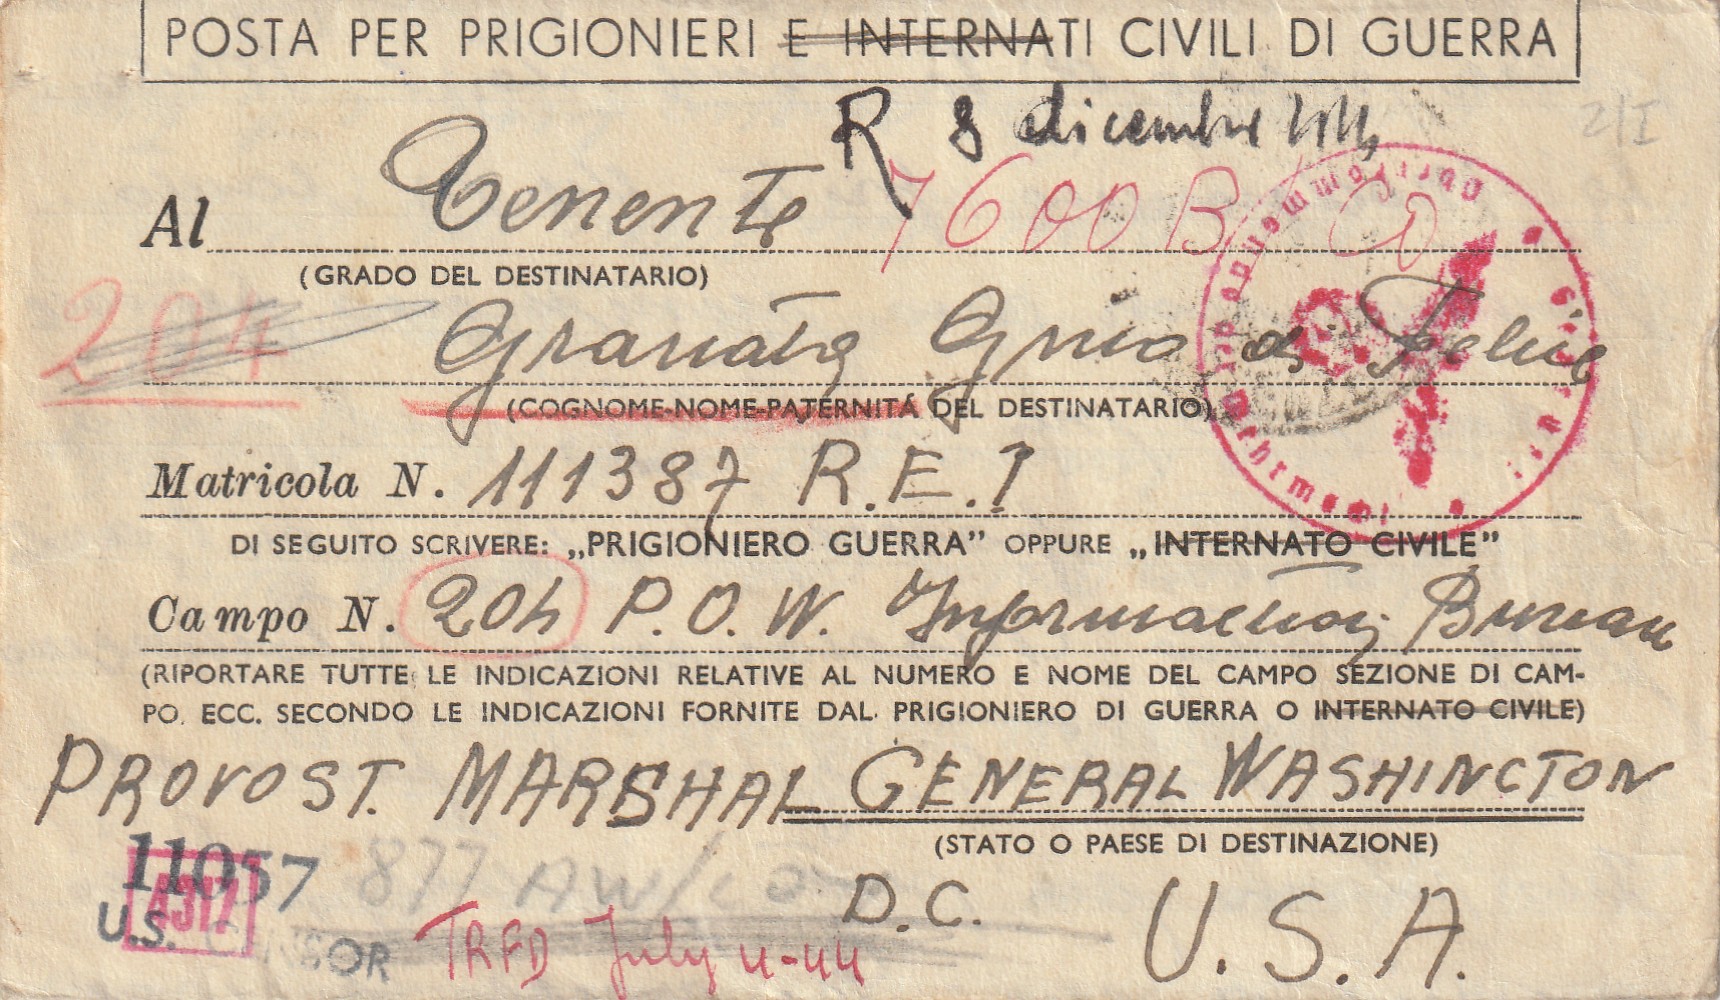 POSTA PER PRIGIONIERI E INTERNATI CIVILI DI GUERRA
R 8 dicembre 44
2/I
Al Tenente 7600 B
(GRADO DEL DESTINATARIO)
204
Granata di Felice
(COGNOME-NOME-PATERNITÁ DEL DESTINATARIO)
Matricola N. 111387 R.E.I
DI SEGUITO SCRIVERE: „PRIGIONIERO GUERRA” OPPURE „INTERNATO CIVILE”
Campo N. 204 P.O.W. Information Bureau
(RIPORTARE TUTTE LE INDICAZIONI RELATIVE AL NUMERO E NOME DEL CAMPO SEZIONE DI CAM-
PO. ECC. SECONDO LE INDICAZIONI FORNITE DAL PRIGIONIERO DI GUERRA O INTERNATO CIVILE)
PROVOST. MARSHAL GENERAL WASHINCTON
(STATO O PAESE DI DESTINAZIONE)
11057
4317
877 AW/
D.C. U.S.A.
U.S. CENSOR
TRFD July 4-44
Oberkommando der Wehrmacht